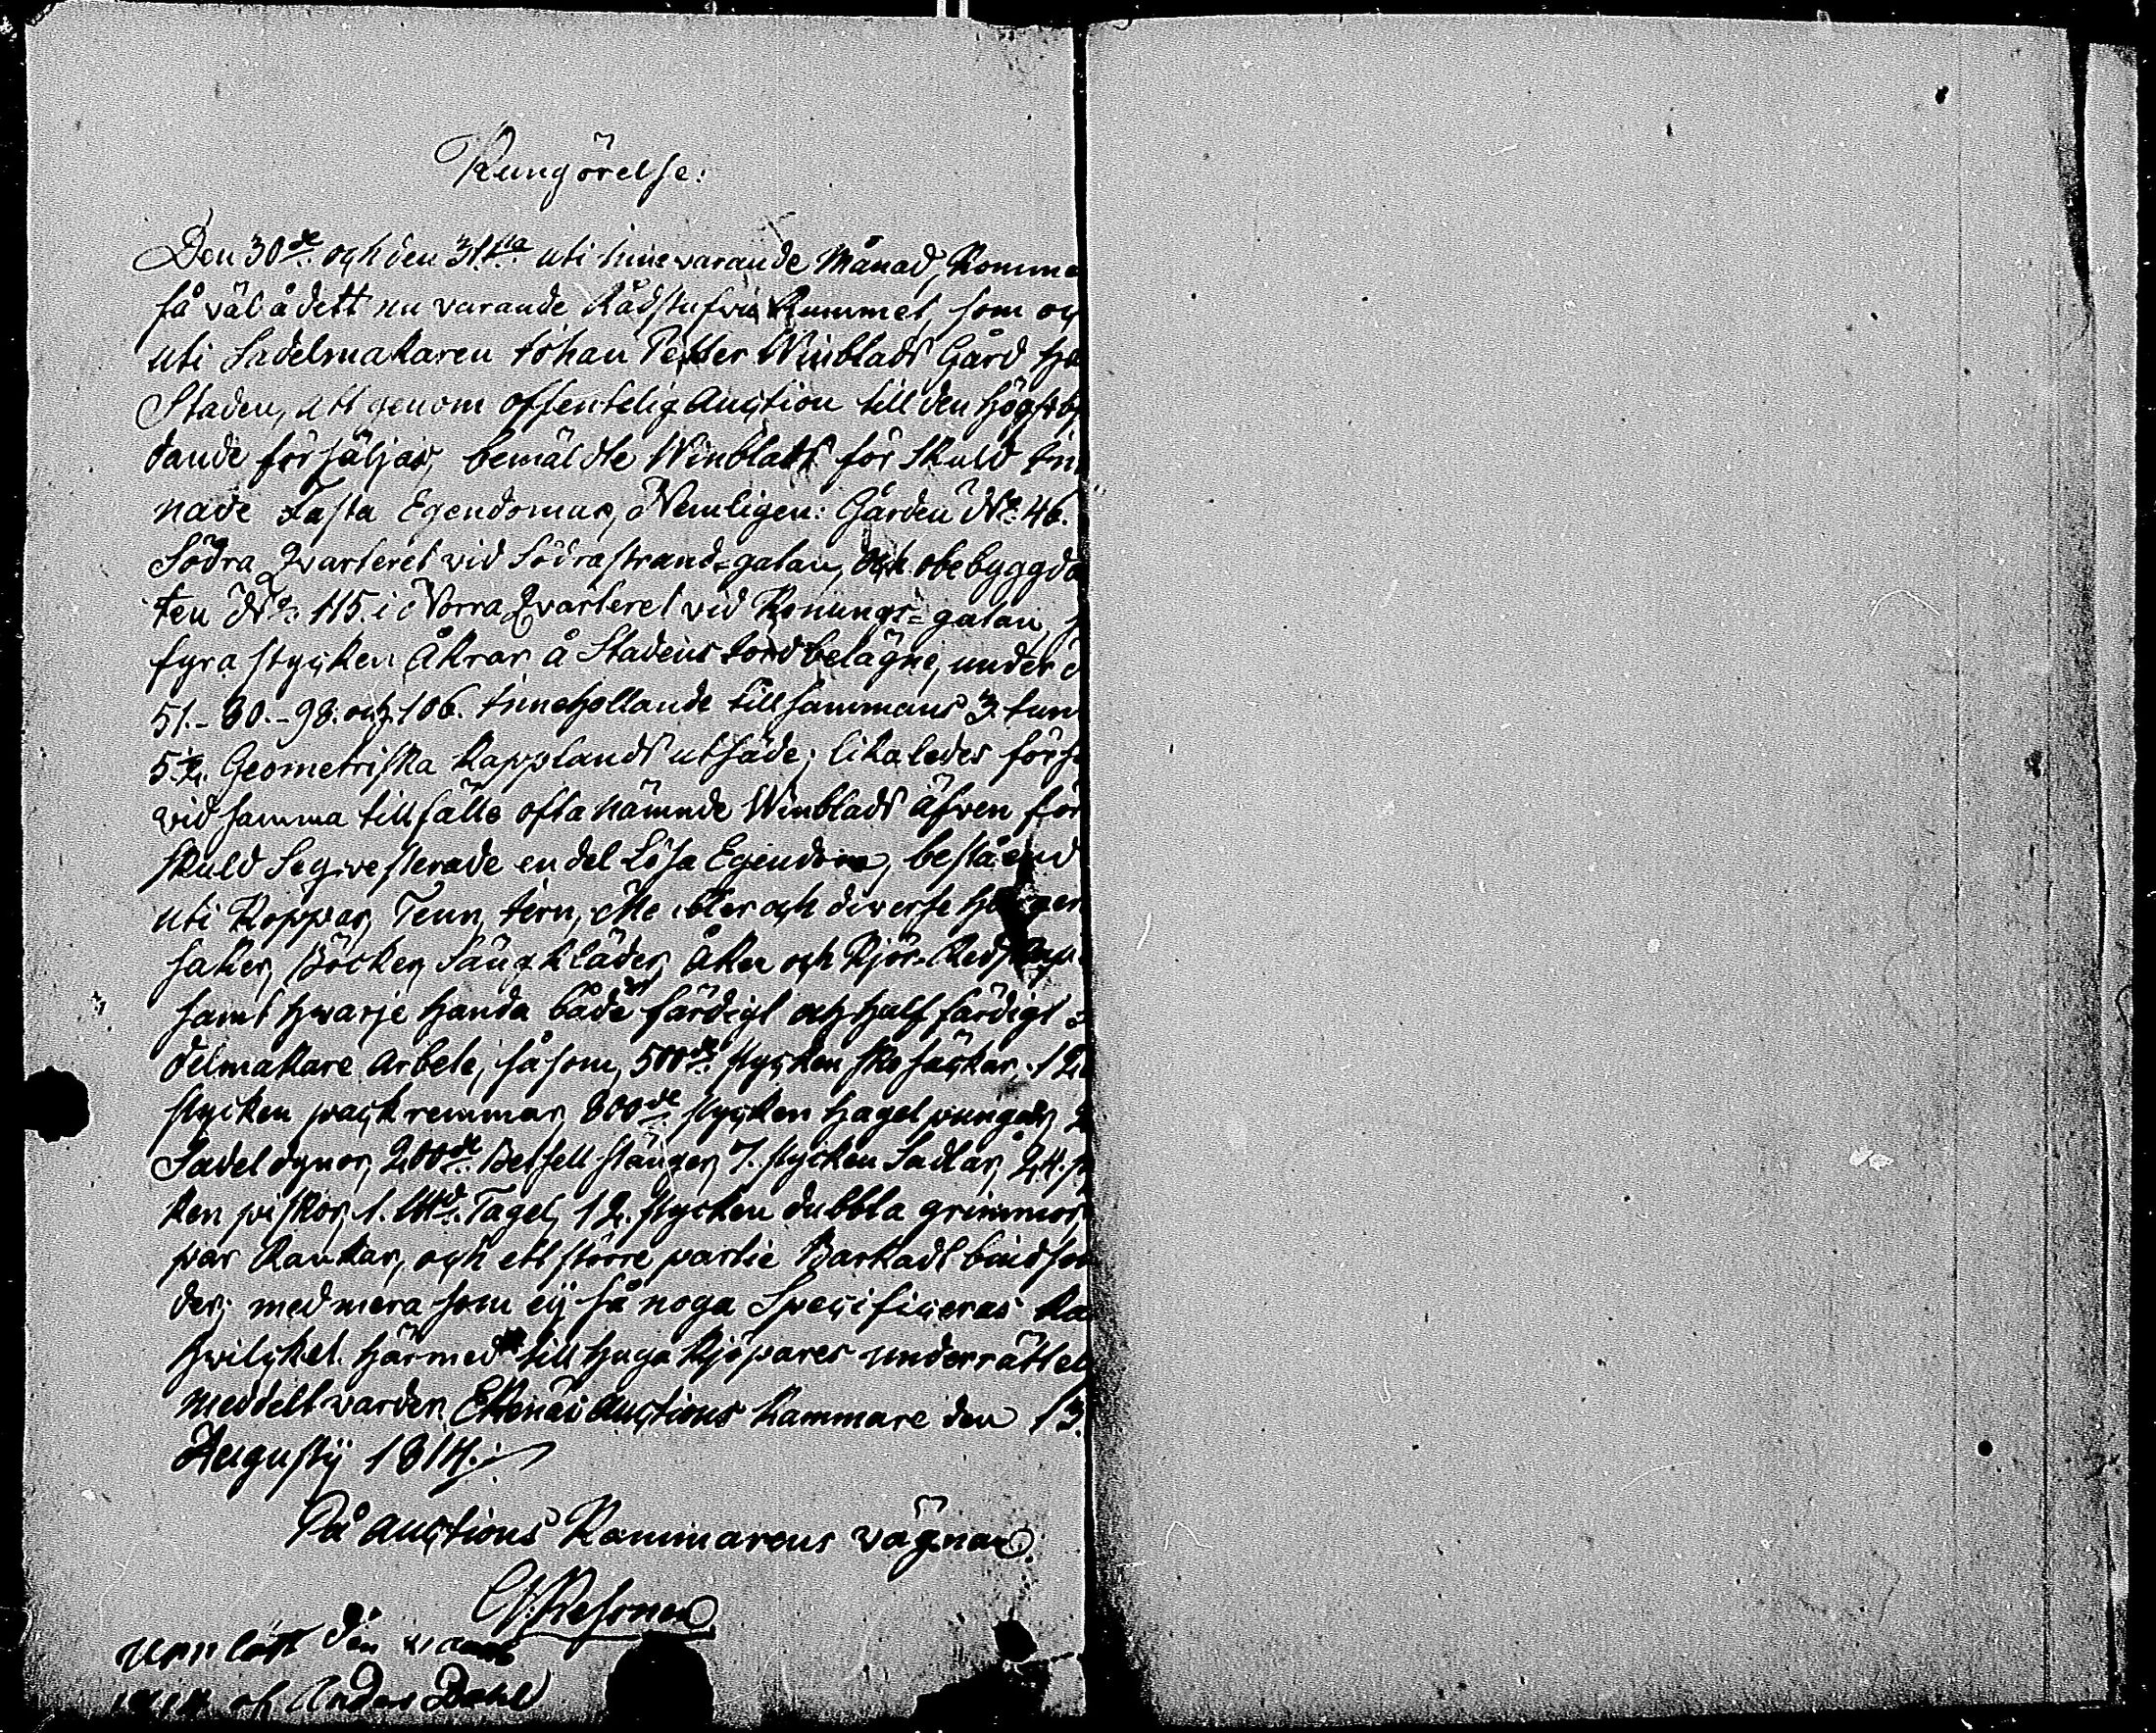 Kungörelse:
Den 30de och den 31sta uti innevarande Månad, Komme
så väl å dett nu varande Rådstufvu Rummet, som oc
uti Sadelmakaren Johan Petter Winblads Gård
Staden, att genom offentelig Auction till den Högstb
dande försäljas, bemäldte Winblads för skuld
nade Fasta Egendomar, Nemligen: Gården No: 46.
Södra Qvarteret vid Södra strand-gatan, och obebyggda
ten No: 115. i Norra Qvarteret vid Konungs-gatan,
fyra stycken Åkrar å Stadens Jord belägne, under
51.- 80.- 98. och 106. Innehollande tillsammans 3. tun
Geometriska Kapplands utsäde; lika ledes förs
vid samma tillfälle ofta nämnde Winblads äfven för
skuld Seqvesterade en del Lösa Egendom, beståend
uti Koppar, Tenn, Jern, Möbler och diverse
saker, Böcker, Sängkläder, Åker och Kjör-Redskap
samt hvarje handa både färdigt och half färdigt
delmakare Arbete, så som, 500de stycken
stycken pack remmar, 800de stycken Hagel pungar,
Sadel dynor, 200de Betsell stänger, 7. stycken Sadlar, 24. s
ken piskor, 1. Tagel, 12. stycken dubbla grimmor,
par Rankar, och ett större partie Barkadt
der; med mera som ej så noga Specificeras ka
hvilcket härmed till huga Kjöpares underrättel
meddelt varder. Ekenäs Auctions Kammare den 13.
Augusty 1814.
På Auctions Kammarens vägnar:
den
af Anders